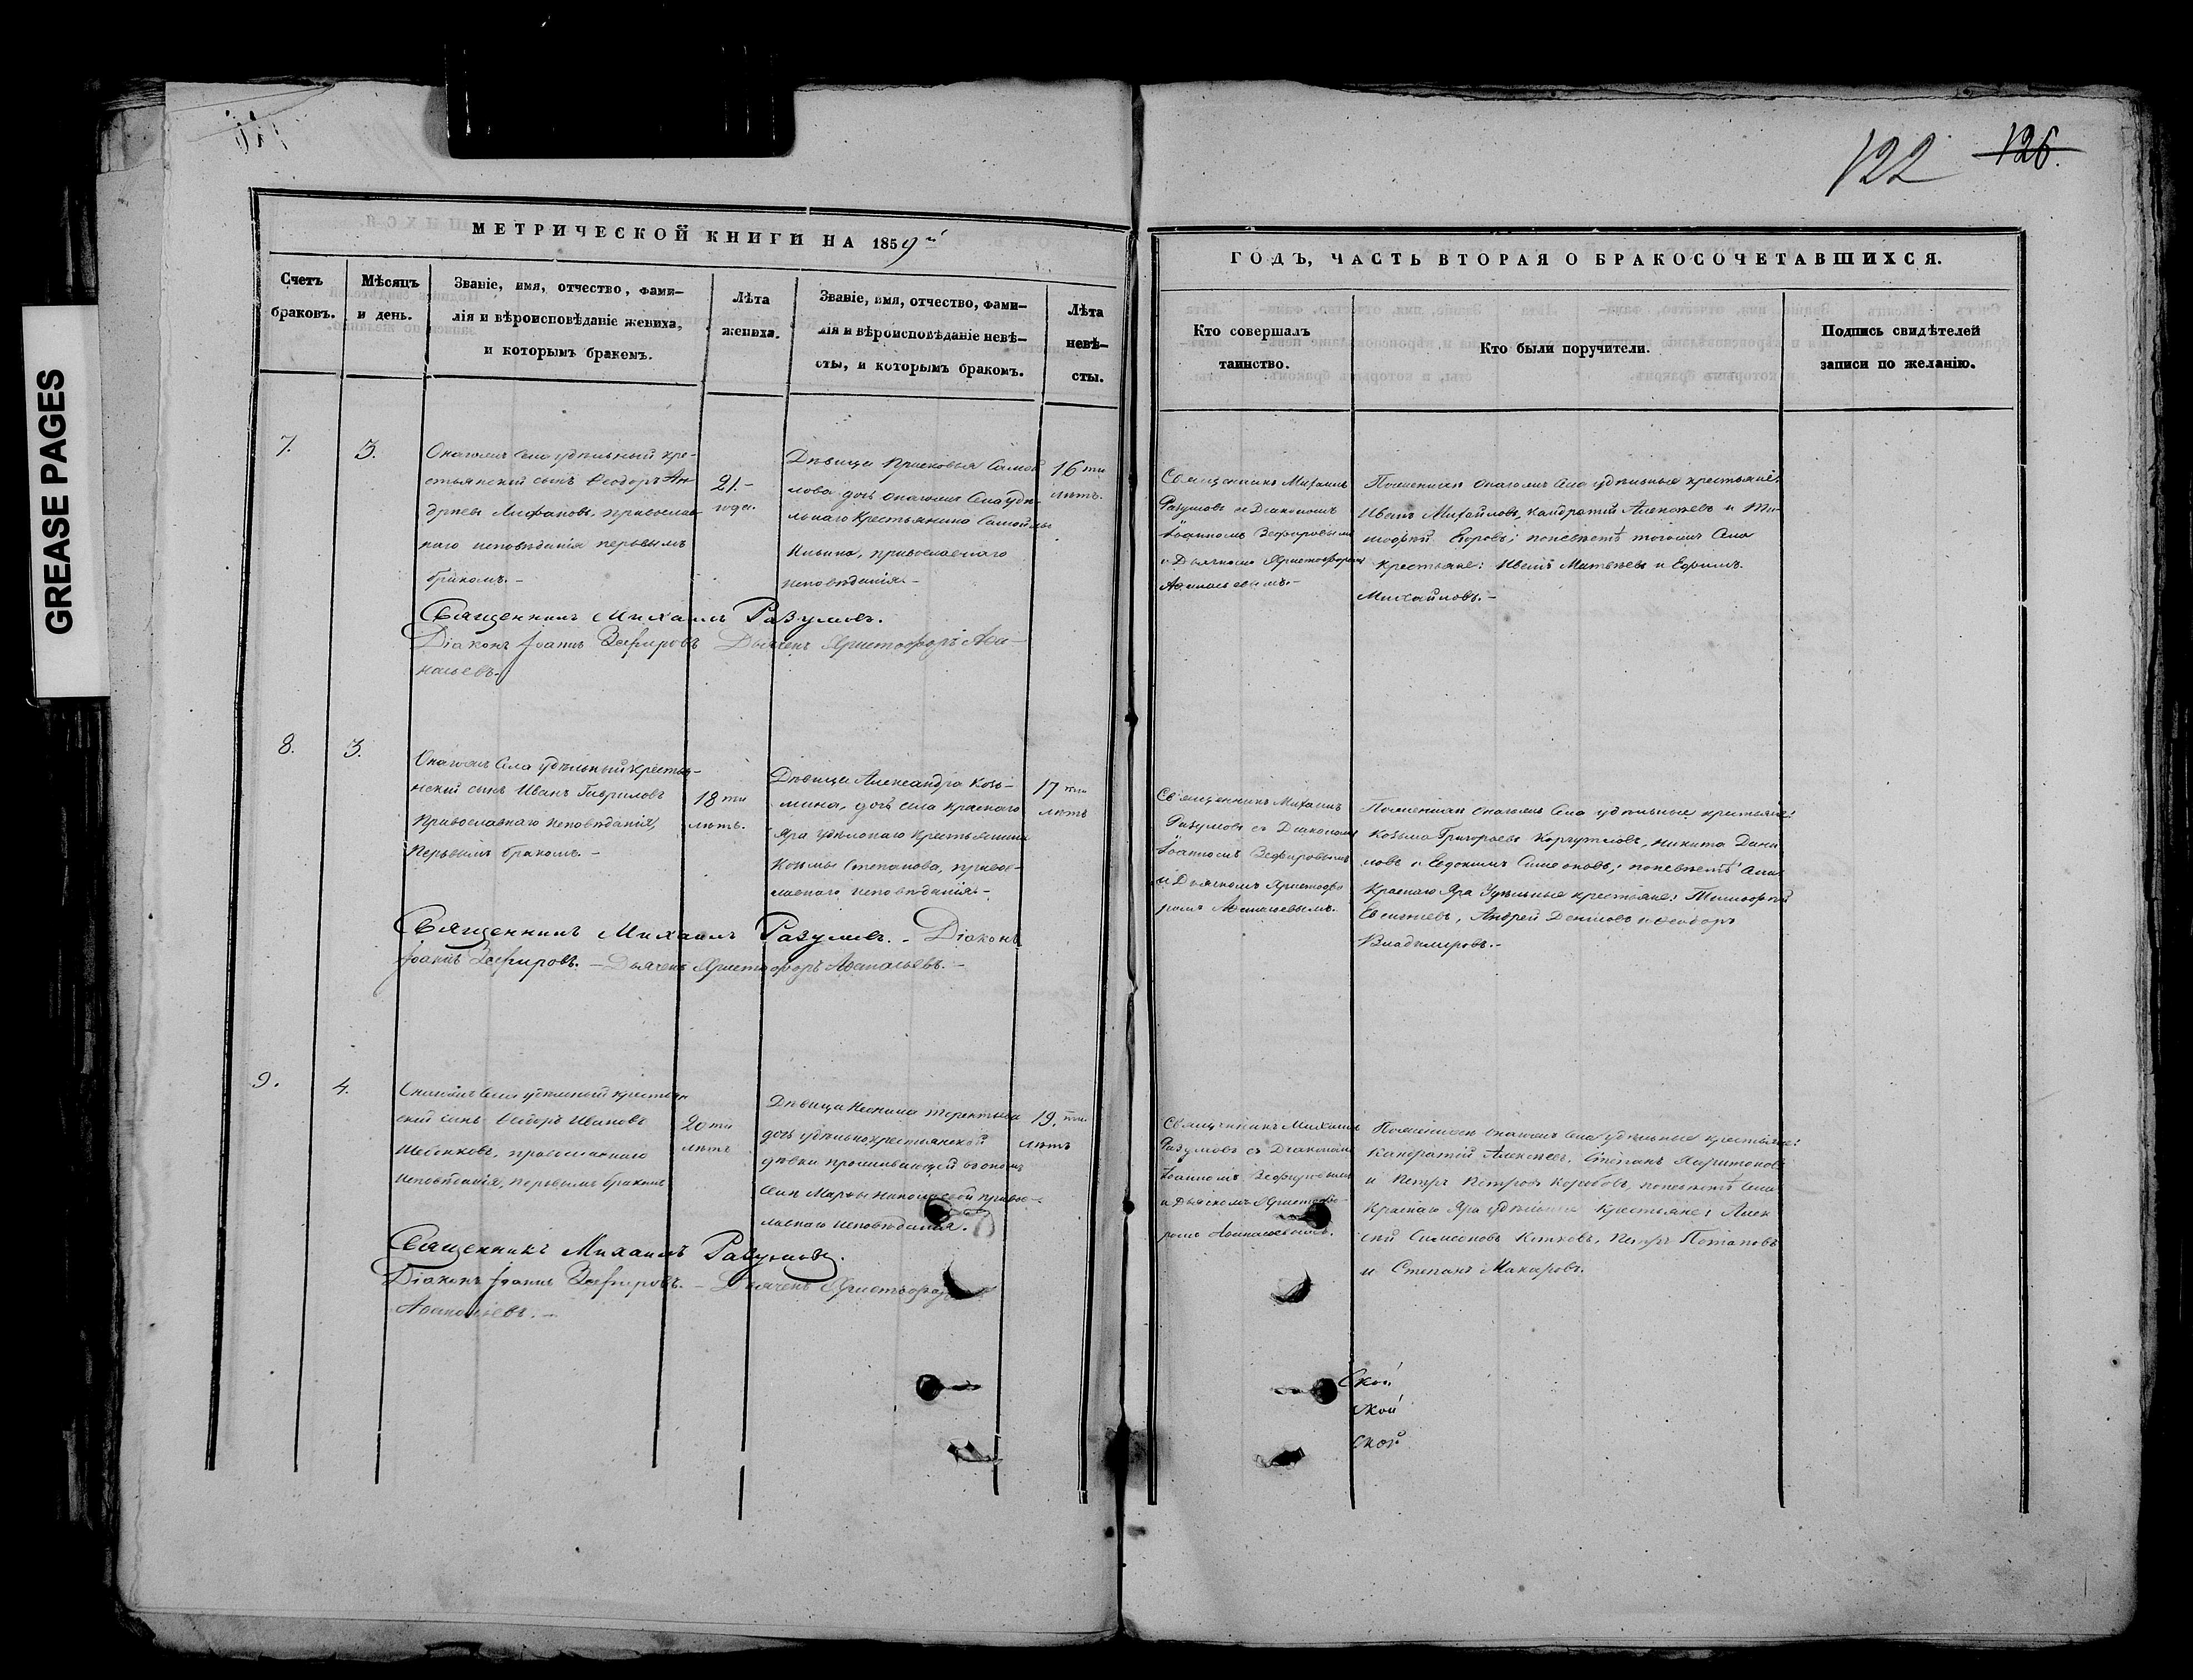 GREASE PAGES
122 126.
МЕТРИЧЕСКОЙ КНИГИ НА 1859й
Счетъ браковъ.
Мѣсяцъ и день.
Званіе, имя, отчество, фами-
лія и вѣроисповѣданіе жениха,
и которымъ бракомъ.
Лѣта
жениха.
Званіе, имя, отчество, фами-
лія и вѣроисповѣданіе невѣ-
сты, и которымъ бракомъ.
Лѣта
невѣ-
сты.
ГОДЪ, ЧАСТЬ ВТОРАЯ О БРАКОСОЧЕТАВШИХСЯ.
Кто совершалъ
таинство.
Кто были поручители.
Подпись свидѣтелей
записи по желанію.
7.
3.
Онагожъ села удѣльный кре-
стьянскій сынъ Ѳеодоръ Ан-
дреевъ православ-
наго исповѣданія первымъ
бракомъ.-
21.-
года.
Дѣвица Прасковья Самой
лова дочь онагожъ села удѣ-
льнаго крестьянина Самойлы
Ильина, православнаго
исповѣданія.-
16ти
лѣтъ.
Священникъ Михаилъ
Разумовъ съ Діакономъ
Іоанномъ Зефировымъ
и Дьячкомъ Христофоромъ
Аѳанасьевымъ.-
По женихѣ онагожъ села удѣльные крестьяне:
Иванъ Михайловъ, Кандратій Алексѣевъ и Ти-
моѳей Егоровъ; по невѣстѣ тогожъ села
крестьяне: Иванъ Матвѣевъ и Ефимъ
Михайловъ.-
Священникъ Михаилъ Разумовъ.
Діаконъ Іоаннъ Зефировъ Дьячекъ Христофоръ Аѳа-
насьевъ.
8.
3.
Онагожъ села удѣльный крестья-
нскій сынъ Иванъ Гавриловъ
православнаго исповѣданія,
первымъ бракомъ.-
18ти
лѣтъ.
Дѣвица Александра Козь-
мина, дочь села Краснаго
Яра удѣльнаго крестьянина
Козьмы Степанова, право-
славнаго исповѣданія.-
17ти
лѣтъ
Священникъ Михаилъ
Разумовъ съ Діакономъ
Іоанномъ Зефировымъ
и Дьячкомъ Христофо
ромъ Аѳанасьевымъ.
По женихѣ онагожъ села удѣльные крестьяне:
Козьма Григорьевъ Никита Дани
ловъ и Евдокимъ Симеоновъ; по невѣстѣ села
Краснаго Яра удѣльные крестьяне: Тимоѳей
Андрей Денисовъ и Ѳеодоръ
Владимировъ.-
Священникъ Михаилъ Разумовъ. - Діаконъ
Іоаннъ Зефировъ. - Дьячекъ Христофоръ Аѳанасьевъ.-
9.
4.
Онагожъ села удѣльный крестьян
скій сынъ Ѳедоръ Ивановъ
православнаго
исповѣданія, первымъ бракомъ
20ти
лѣтъ
Дѣвица Неонила Терентьева
дочь удѣльнокрестьянской
дѣвки проживающей въ ономъ
селѣ Марѳы Николаевой право-
славнаго исповѣданія.
19.ти
лѣтъ
Священникъ Михаилъ
Разумовъ съ Діакономъ
Іоанномъ Зефировымъ
и Дьячкомъ Христофо-
ромъ Аѳанасьевымъ.
По женихѣ онагожъ села удѣльные крестьяне:
Кандратій Алексѣевъ, Степанъ Харитоновъ
и Петръ Петровъ по невѣстѣ села
Краснаго Яра удѣльные крестьяне: Алек
сѣй Симеоновъ Петръ Потаповъ
и Степанъ Макаровъ.
Священникъ Михаилъ Разумовъ.
Діаконъ Іоаннъ Зефировъ. - Дьячекъ Христофоръ
Аѳанасьевъ.-
Ской
ской
ской